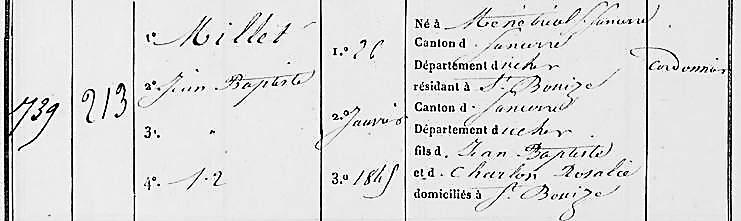 1º Millet
2º Jean Baptiste
3º "
4º 1-2
739
213
1.º 26
2.º Janvier
3.º 1845
Né à Ménétréol s/ Sancerre
Canton d Sancerre
Département du cher
résidant à St Bouize
Canton d Sancerre
Département du cher
fils d Jean Baptiste
et d Charlon Rosalie
domiciliés à St Bouize
Cordonnier